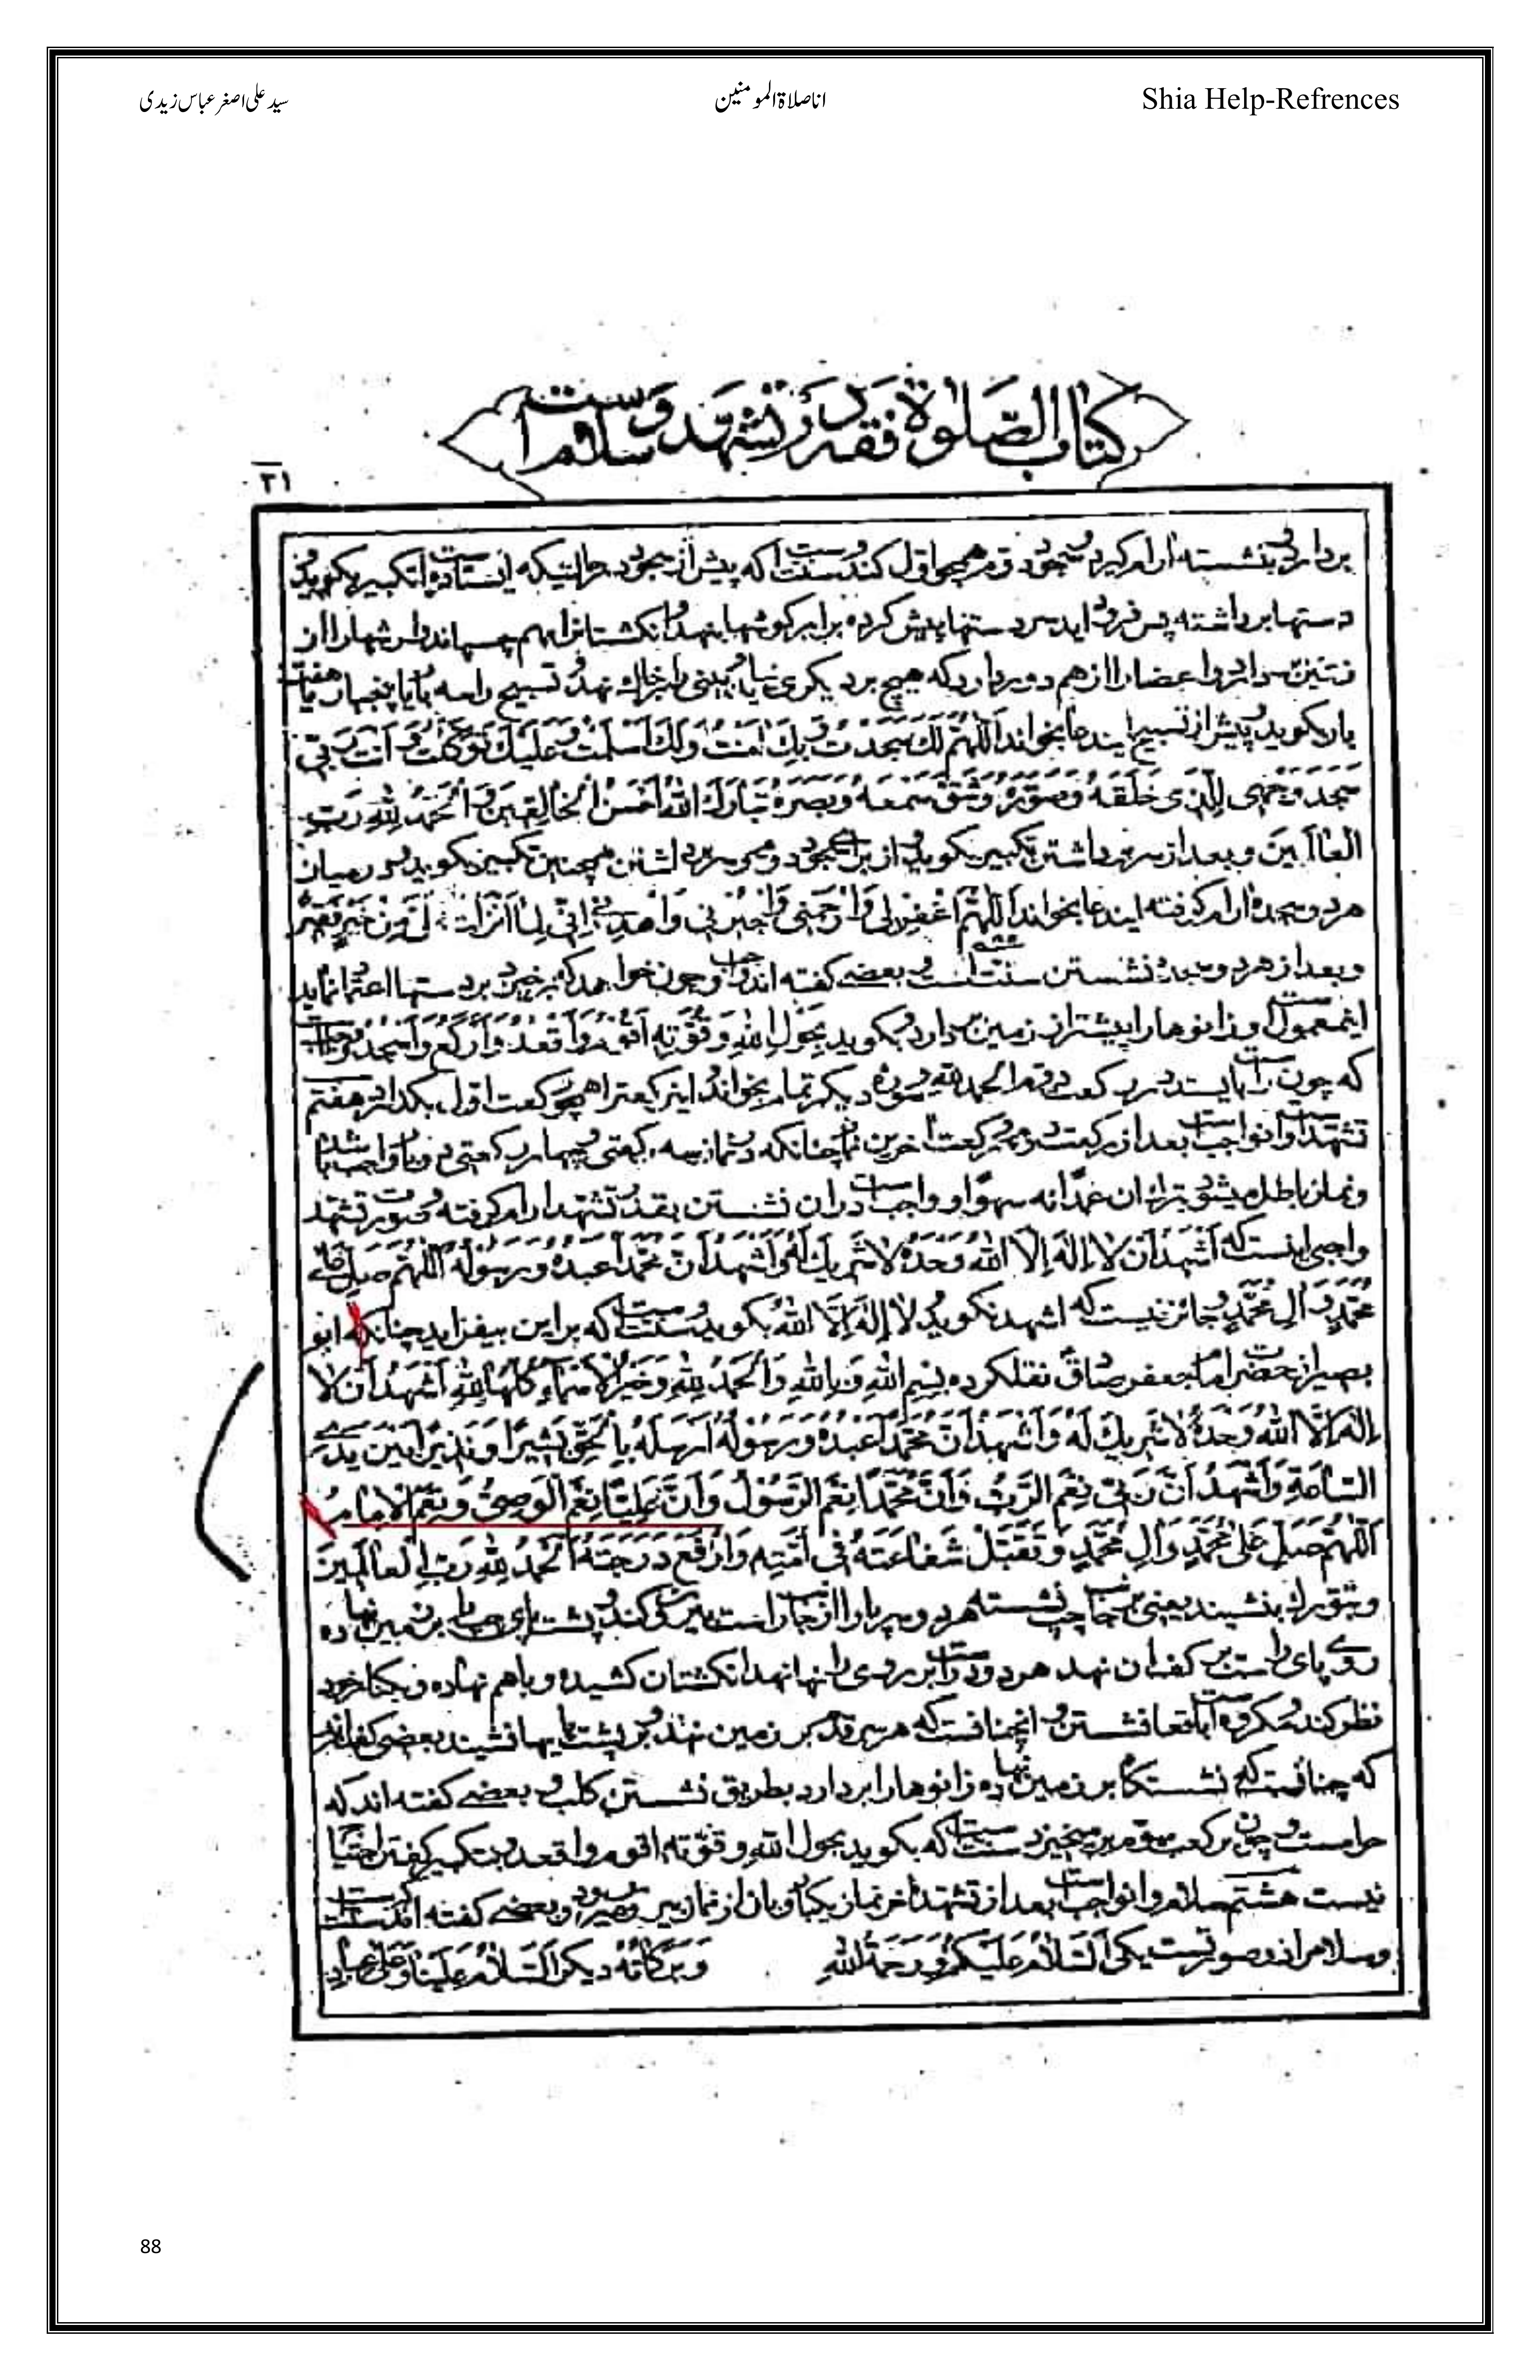 سید علی اصغر عباس زیدی
انا صلاۃ المومنین
Shia Help-Refrences
كتاب الصلوة فقه در تشهد و سلام است
۳۱
بردارد بنشسته ارام كيرد و سجود دوم همچو اول كند و سنت است كه پيش از سجود در حالتيكه ايستاده است تكبير بكويد و
دستها برداشته پس فرود ايد سر دستها پيش كرده برابر كوشها بنهد و انكشتانرا بهم چسپاند و ارشها را از
زمين بردارد و اعضا را از هم دور دارد كه هيچ بر ديكرى نيايد و بينى را بر خاك نهد و تسبيح را سه بار يا پنجبار يا هفت
بار بكويد و پيش از تسبيح ايندعا بخواند اَللّٰهُمَّ لَكَ سَجَدْتُ وَ بِكَ اٰمَنْتُ وَلَكَ اَسْلَمْتُ وَ عَلَيْكَ تَوَكَّلْتُ وَ اَنْتَ رَبّى
سَجَدَ وَجْهِى لِلَّذى خَلَقَهُ وَ صَوَّرَهُ وَ شَقَّ سَمْعَهُ وَ بَصَرَهُ تَبَارَكَ اللّٰهُ اَحْسَنُ الْخَالِقينَ وَ اَلْحَمْدُ لِلّٰهِ رَبِّ
العالَمينَ و بعد از سر برداشتن تكبير بكويد و از براى سجود دوم و سر برداشتن همچنين تكبير بكويد و در ميان
هر دو سجده ارام كرفته ايندعا بخواند اَللّٰهُمَّ اغْفِرْلى وَارْحَمْنى وَاجْبُرْنى وَاهْدِنى اِنّى لِمَا اَنْزَلْتَ اِلَىَّ مِنْ خَيْرٍ فَقيرٌ
و بعد از هر دو سجده نشستن سنت است و بعضے كفته اند واجب و چون خواهد كه برخيزد بر دستها اعتماد نمايد
و زانوها را پيشتر از زمين بردارد و بكويد بِحَوْلِ اللّٰهِ وَ قُوَّتِه اَقُومُ وَاَقْعُدُ وَاَرْكَعُ وَاَسْجُدُ
كه چون راست بايستد در ركعت دوم الحمد لله و سوره ديكر تمام بخواند و اين ركعت را همچو ركعت اول بكذارد هفتم
تشهد است و ان واجب است بعد از ركعت دوم و ركعت اخرين نماز چنانكه در نماز سه ركعتى و چهار ركعتى دو بار واجب باشد
و نماز باطل ميشود بترك ان عمدا نه سهوا و واجب است دران نشستن بقدر تشهد ارام كرفته و صورت تشهد
واجبى اينست كه اَشْهَدُ اَنْ لا اِلٰهَ اِلَّا اللّٰهُ وَحْدَهُ لا شَريكَ لَهُ وَاَشْهَدُ اَنَّ مُحَمَّدًا عَبْدُهُ وَ رَسُولُهُ اَللّٰهُمَّ صَلِّ عَلٰى
مُحَمَّدٍ وَ اٰلِ مُحَمَّدٍ و جائز نيست كه اشهد نكويد و لا اِلٰهَ اِلَّا اللّٰهُ بكويد و سنت است كه براين بيفزايد چنانكه ابو
بصير از حضرت امام جعفر صادق نقل كرده بِسْمِ اللّٰهِ وَ بِاللّٰهِ وَالْحَمْدُ لِلّٰهِ وَ خَيْرُ الْاَسْمَاءِ كُلُّهَا لِلّٰهِ اَشْهَدُ اَنْ لا
اِلٰهَ اِلَّا اللّٰهُ وَحْدَهُ لا شَريكَ لَهُ وَ اَشْهَدُ اَنَّ مُحَمَّدًا عَبْدُهُ وَ رَسُولُهُ اَرْسَلَهُ بِالْحَقِّ بَشيرًا وَ نَذيرًا بَيْنَ يَدَىِ
السَّاعَةِ وَ اَشْهَدُ اَنَّ رَبّى نِعْمَ الرَّبُّ وَ اَنَّ مُحَمَّدًا نِعْمَ الرَّسُولُ وَ اَنَّ عَلِيًّا نِعْمَ الْوَصِىُّ وَ نِعْمَ الْاِمَامُ
اَللّٰهُمَّ صَلِّ عَلٰى مُحَمَّدٍ وَ اٰلِ مُحَمَّدٍ وَ تَقَبَّلْ شَفَاعَتَهُ فى اُمَّتِه وَ ارْفَعْ دَرَجَتَهُ اَلْحَمْدُ لِلّٰهِ رَبِّ الْعَالَمينَ
و بتورك بنشيند يعنى بر جانب چپ نشسته هر دو پا را از جانب راست بيرون كند و پشت پاى چپ را بر زمين نهاده
روے پاى راست بر كف ان نهد هر دو دست را بر روى رانها نهد انكشتان كشيده و باهم نهاده و بكنار خود
نظر كند و مكروه است اقعا نشستن و انچنانست كه هر سر قدم بر زمين نهد و بر پشت پايها نشيند بعضى كفته اند
كه چنانست كه نشستكاه بر زمين نهاده زانوها را بردارد بطريق نشستن كلب و بعضے كفته اند كه
حرامست و چون بركعت سوم برميخيزد سنت است كه بكويد بحول الله و قوته اقوم و اقعد و بتكبير كفتن احتياج
نيست هشتم سلام و ان واجب است بعد از تشهد اخر نماز يكبار و بان از نماز بيرون ميرود و بعضے كفته اند سنت است
و سلام را دو صورتست يكى اَلسَّلَامُ عَلَيْكُمْ وَ رَحْمَةُ اللّٰهِ وَ بَرَكَاتُهُ ديكر اَلسَّلَامُ عَلَيْنَا وَ عَلٰى عِبَادِ
88